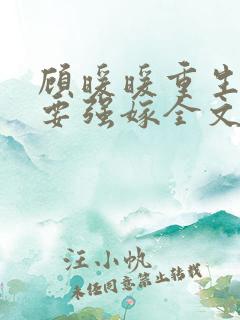 顾暖暖重生
要强嫁全文
汪小帆
未经同意禁止转载